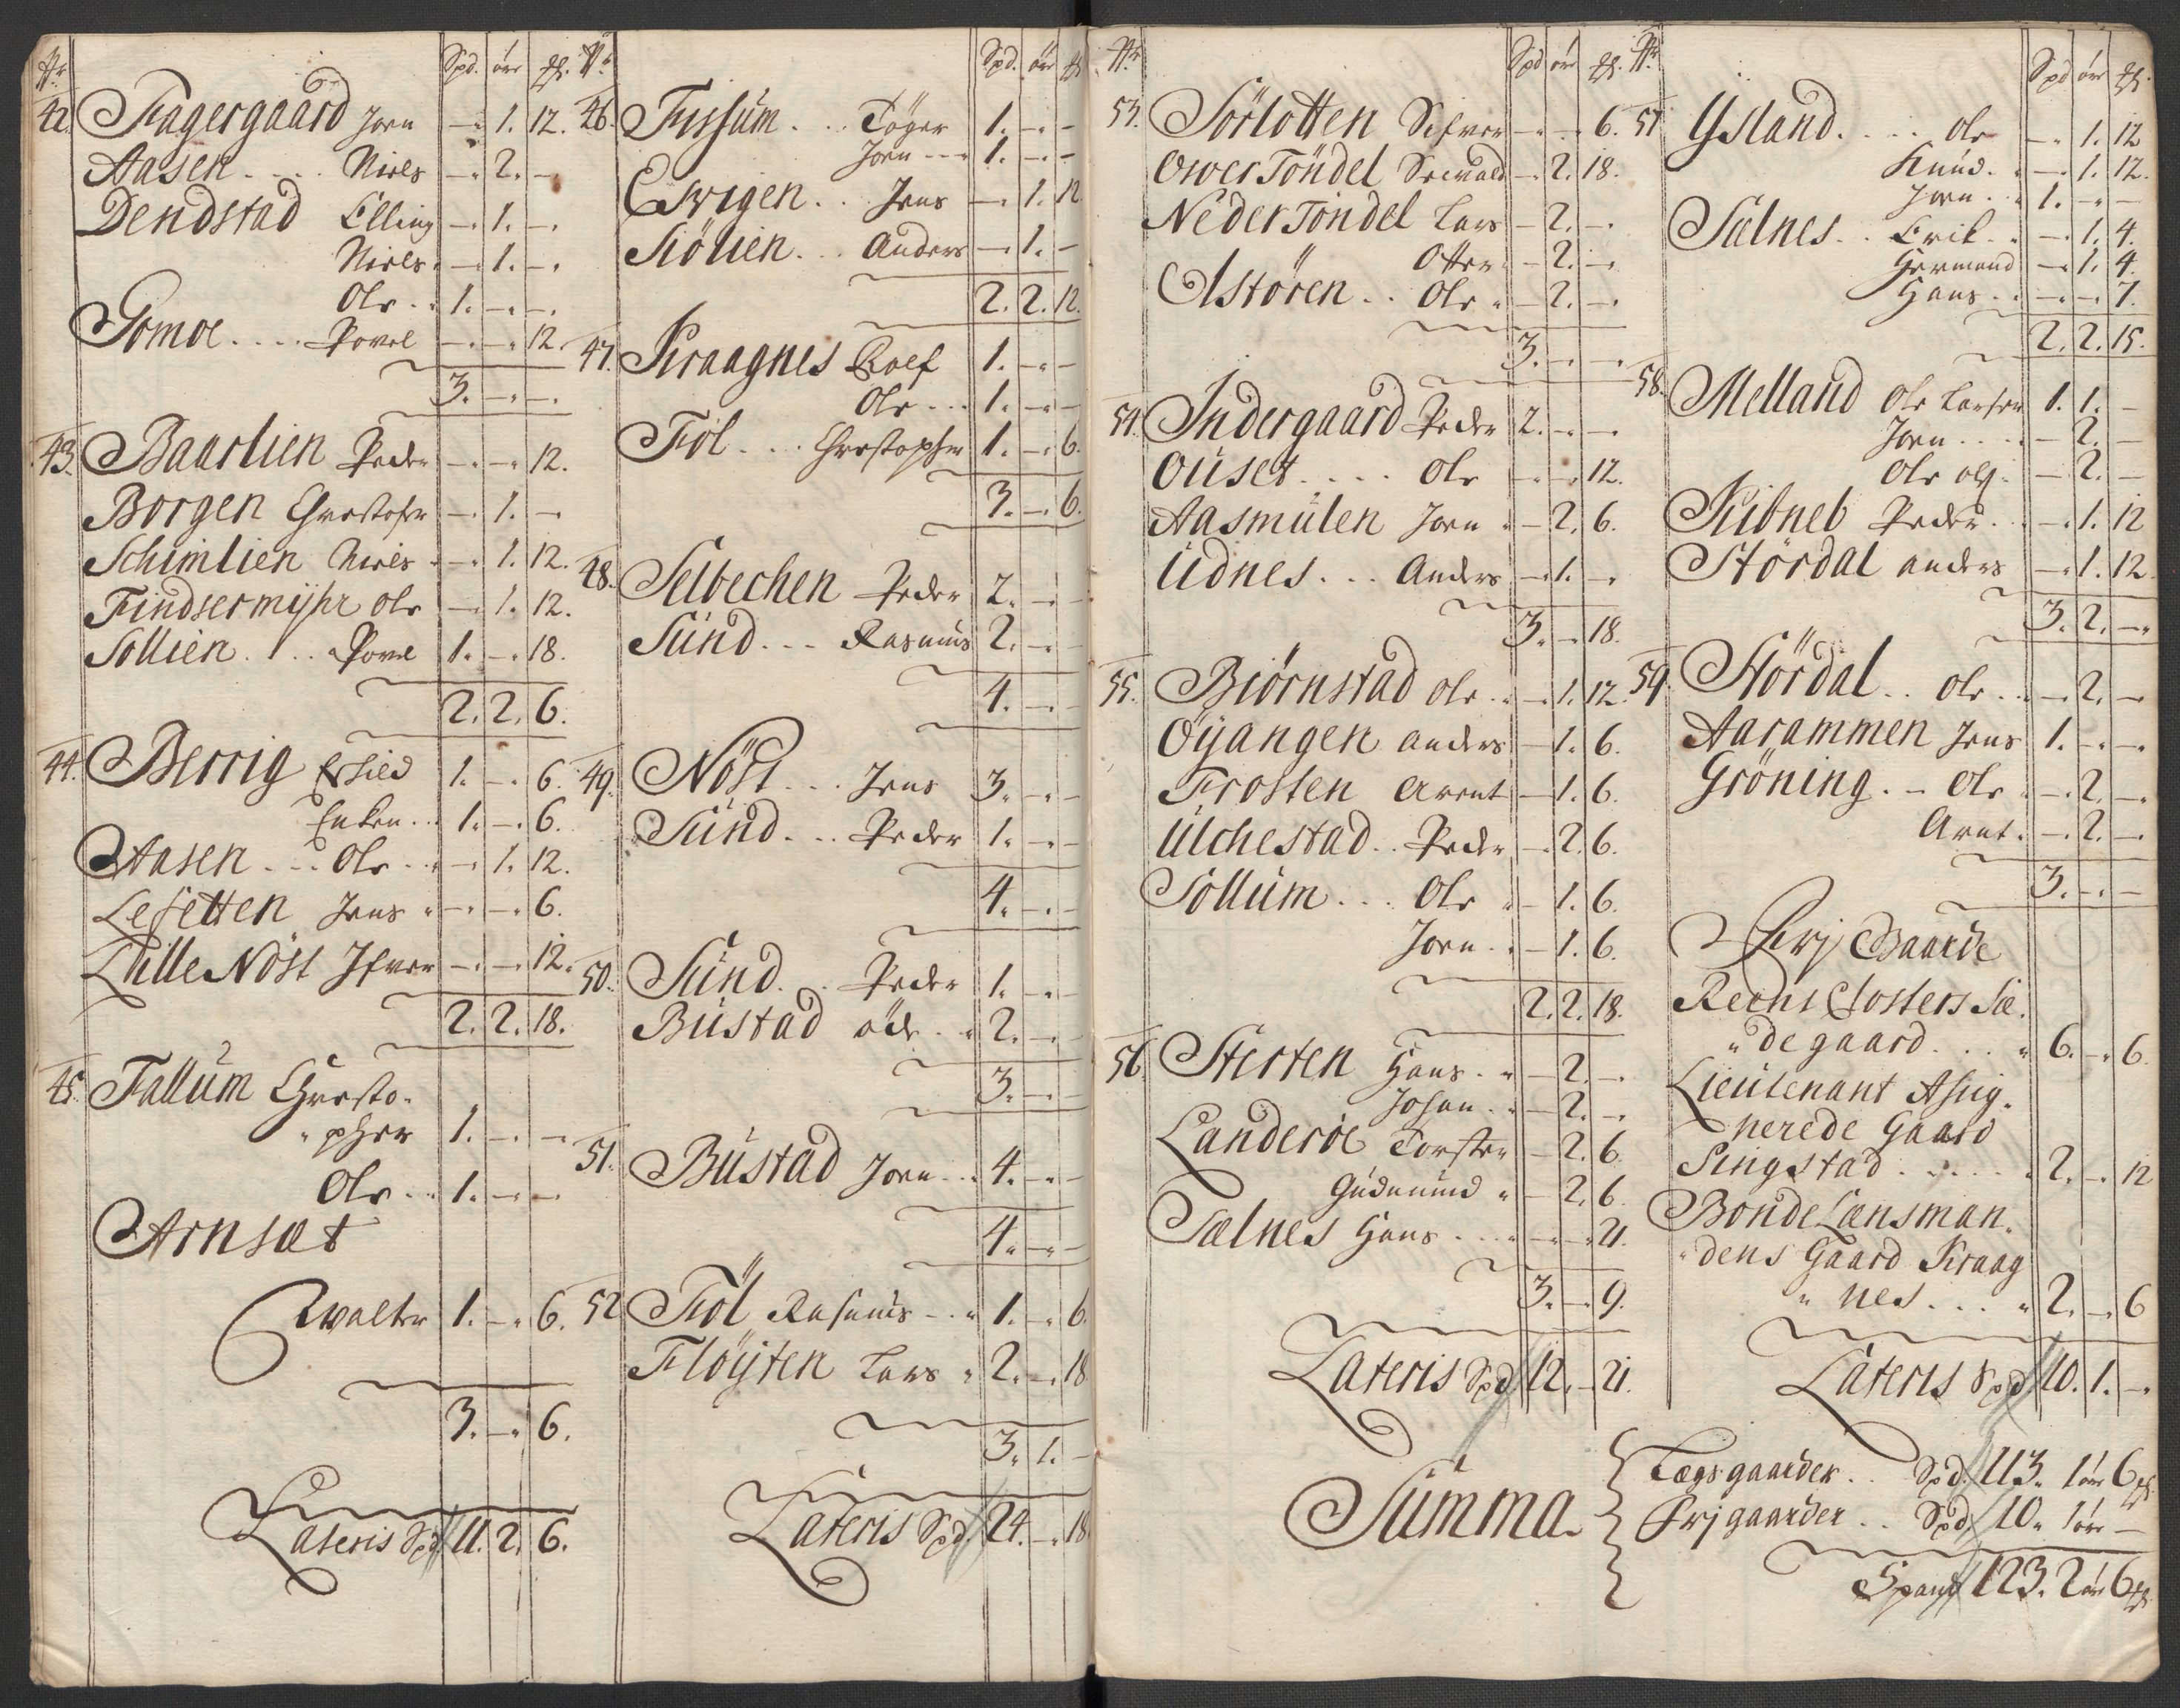 Nr Spd. öre ℔.
42. Fagergaard Joen – 1. 12.
Aasen.... Niels – 2. –
Dendstad Elling – 1. –
Niels – 1. –
Ole.. 1. – –
Gomoe.... Povel – – 12.
3. – –
43. Baarlien Peder – – 12.
Borgen Chrestofer – 1. –
Schimlien Niels – 1. 12.
Findsermyhr Ole – 1. 12.
Sollien... Povel 1. – 18.
2. 2. 6.
44. Berrig 1. – 6
Enken.. 1. – 6.
Aasen... Ole.. – 1. 12.
Lefetten Jens – – 6.
Lille Nöst Ifver – – 12.
2. 2. 18.
45. Fallum Chresto-
pher 1. – –
Ole.. 1. – –
Arnsæt
Ewalter 1. – 6.
3. – 6.
Lateris Spd. 11. 2. 6.
Nr Spd. öre ℔
46. Fissum... Töger 1. – –
Joen --- 1. – –
Eswigen.. Jens – 1. 12
Siölien... Anders – 1. –
2. 2. 12.
47. Kraagnes Roelf 1. – –
Ole... 1. – –
Föl.... Chrestopher 1. – 6.
3. – 6.
48. Selbechen Peder 2. – –
Sund... Rasmus 2. – –
4. – –
49. Nöst... Jens 3. – –
Sund... Peder 1. – –
4. – –
50. Sund.. Peder 1. – –
Bustad 2. – –
3. – –
51. Bustad Joen... 4. – –
4. – –
52 Föl Rasmus – 1. – 6.
Flöyten Lars 2. – 18
3. 1. –
Lateris Spd. 24. – 18
Nr Spd öre ℔.
53. Sörlotten Sifver – – 6.
Ower Töndel Seewald – 2. 18.
Neder Töndel Lars – 2. –
Otter – 2. –
Alstören.. Ole – 2. –
3. – –
54. Indergaard Peder 2. – –
Ouset.... Ole – – 12.
Aasmulen Joen – 2. 6.
Udnes... Anders – 1. –
3. – 18.
55. Biörnstad Ole.. – 1. 12.
Öyangen Anders – 1. 6.
Frosten Arent – 1. 6.
Ulchestad.. Peder – 2. 6.
Sollum... Ole – 1. 6.
Joen.. – 1. 6.
2. 2. 18.
56. Sterten Hans.. – 2. –
Johan. – 2. –
Landeröe Torsten – 2. 6.
Gudmund – 2. 6.
Sælnes Hans... – – 21.
3. – 9.
Lateris Spd 12. – 21.
Nr Spd öre ℔
57 Ysland.... Ole – 1. 12
Knud. – 1. 12.
Joen. 1. – –
Sælnes.. Erik. – 1. 4.
Germund – 1. 4.
Hans. – – 7.
2. 2. 15.
58. Melland Ole Larsen 1. 1. –
Joen.... – 2. –
Ole Ols. – 2. –
Kibneb Peder.. – 1. 12
Stördal anders – 1. 12.
3. 2. –
59. Stördal.. Ole.. – 2. –
Aarammen Jens 1. – –
Gröning. – Ole – 2. –
Arnt. – 2. –
3. – –
Frj Gaarde
Reens Closters Sæ-
degaard... 6. – 6.
Lieutenant Assig-
nerede Gaard
Singstad..... 2. – 12
Bonde Lænsman-
dens Gaard Kraag
nes... 2. – 6
Lateris Spd 10. 1. –
Summa.
Lægsgaarder.. Spd. 113. 1 öre 6 ℔.
Frj gaarder.. Spd. 10. 1 öre –
Spand 123. 2 öre 6 ℔.